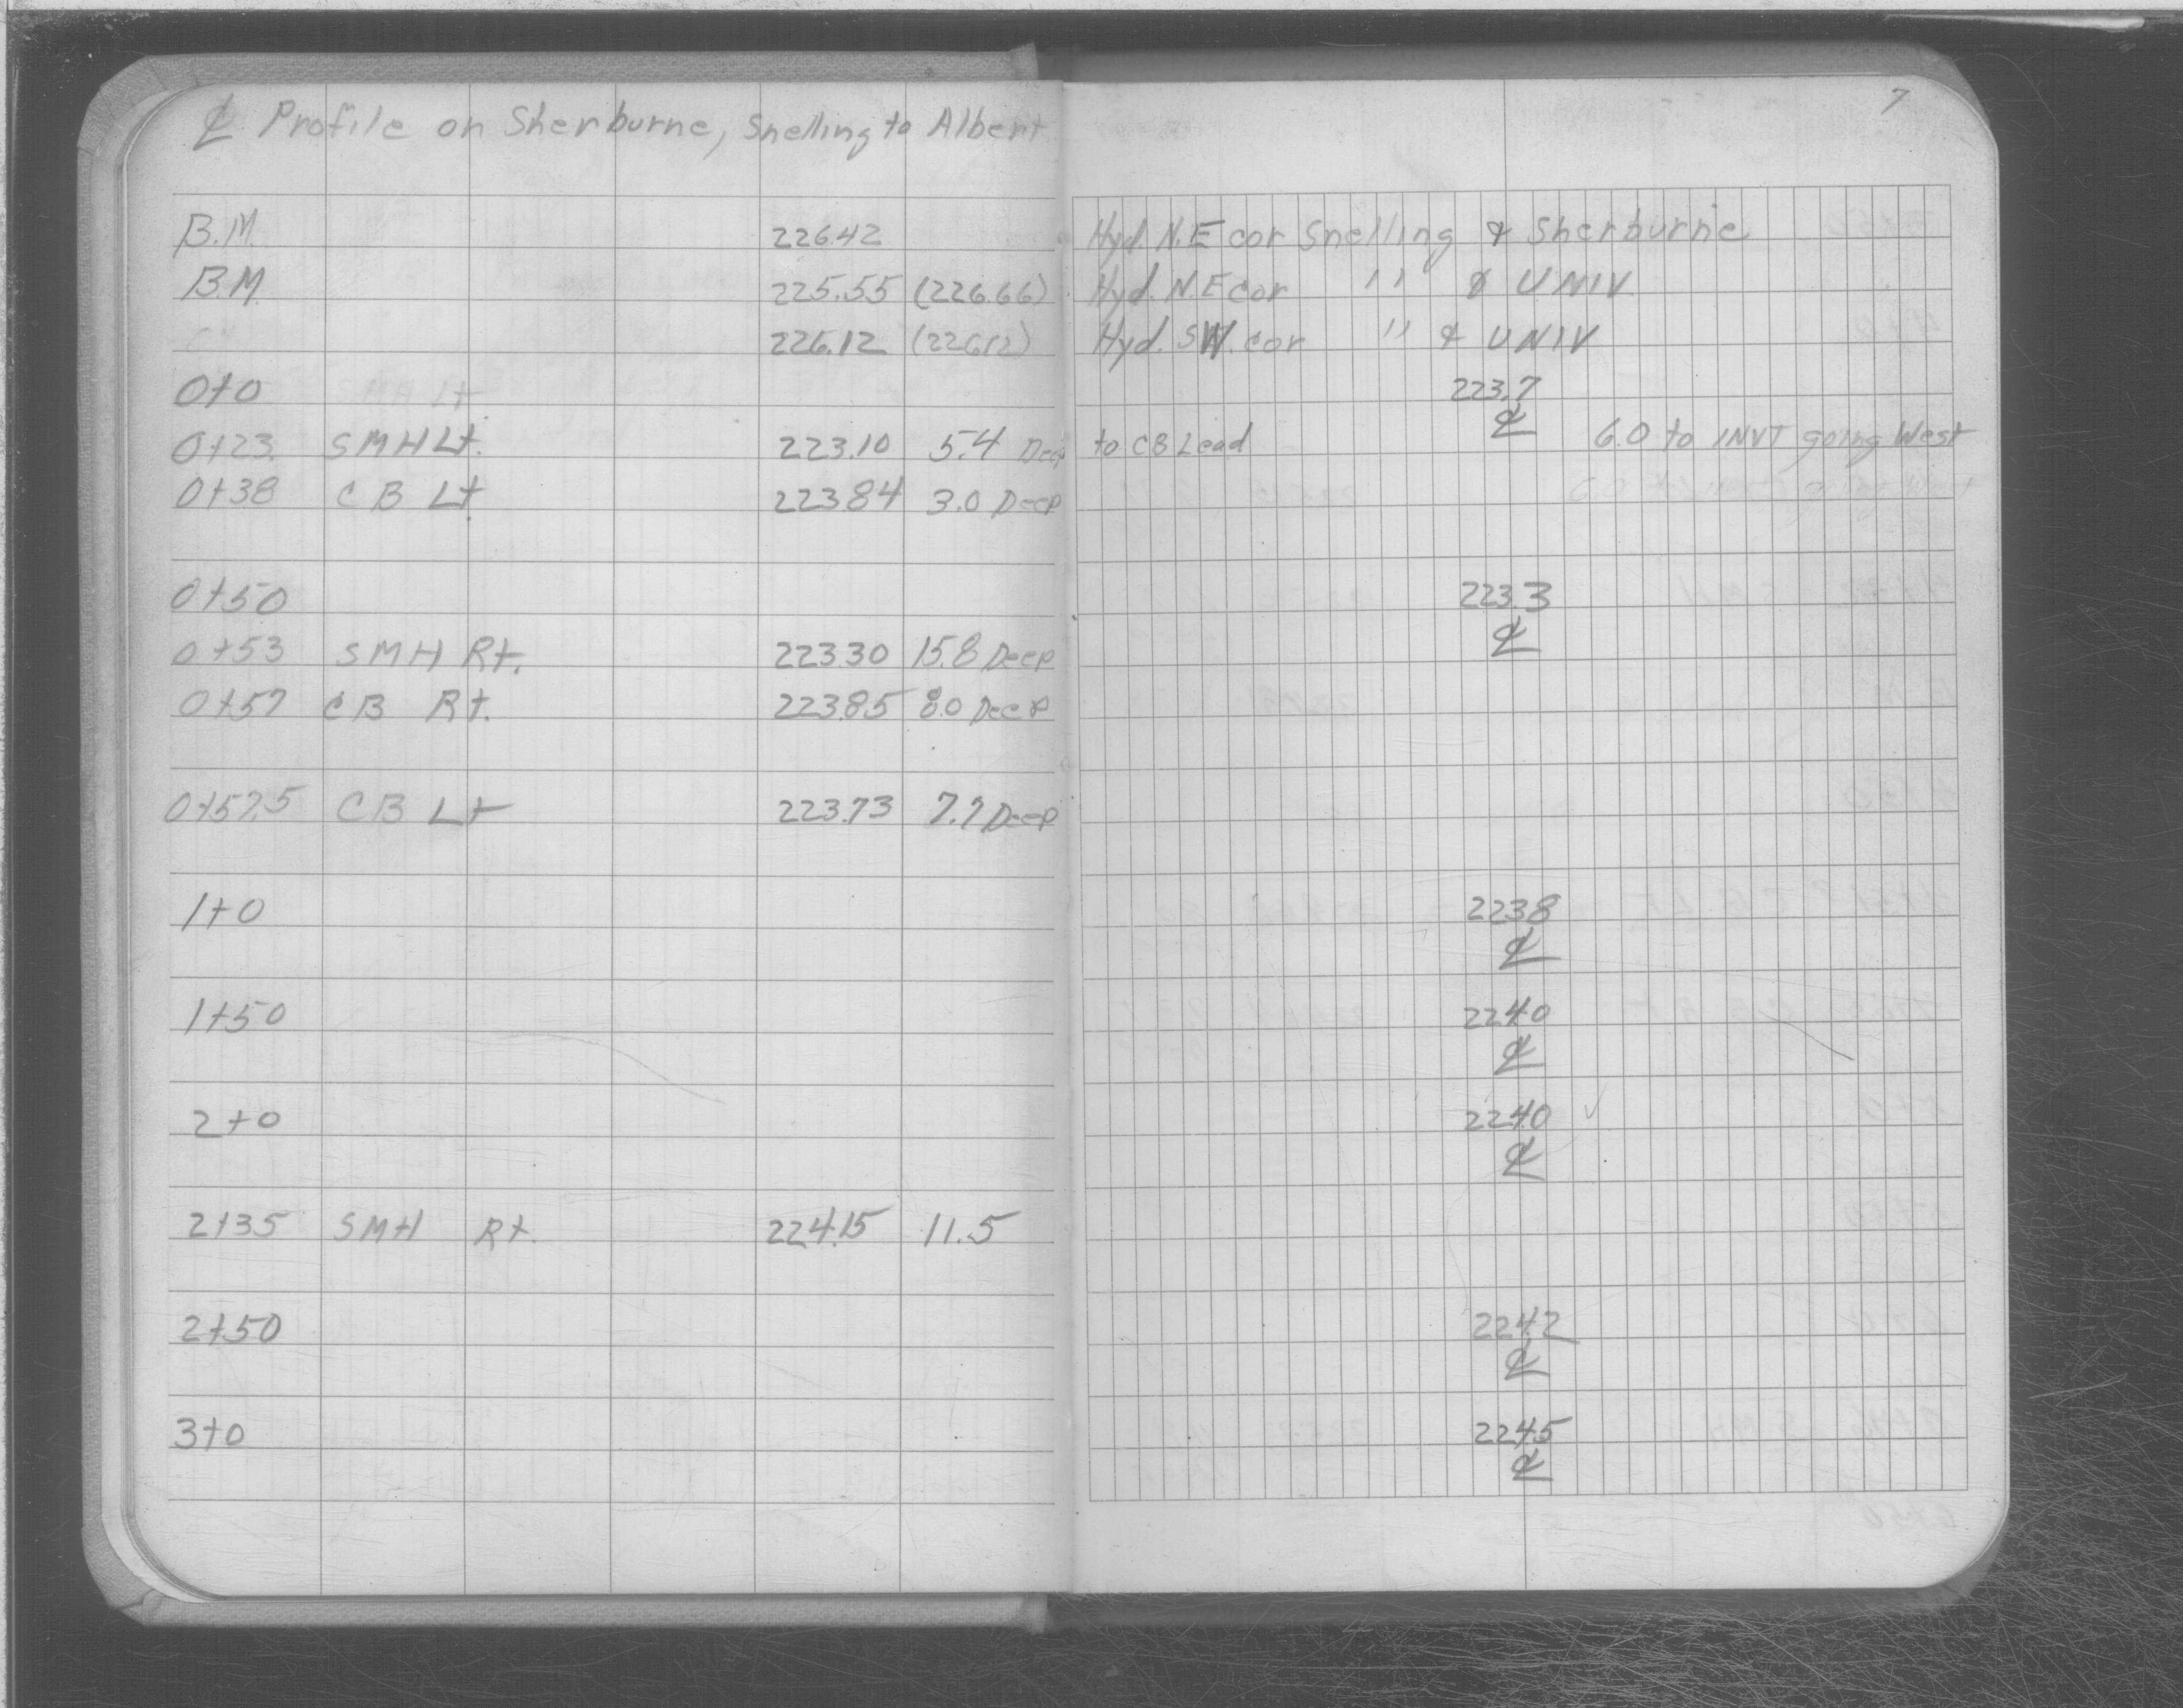 7
℄ Profile on Sherburne, Snelling to Albert
B.M. 226.42 Hyd. N.E cor Snelling & Sherburne
B.M. 225.55 (226.66) Hyd. N.E cor " & UNIV
226.12 (226.12) Hyd. SW. cor " & UNIV
0+0 223.7
℄
0+23 SMH Lt. 223.10 5.4 Deep to CB Lead 6.0 to INVT going West
0+38 CB Lt 223.84 3.0 Deep
0+50 223.3
℄
0+53 SMH Rt. 223.30 15.8 Deep
0+57 CB Rt. 223.85 8.0 Deep
0+57.5 CB Lt 223.73 7.7 Deep
1+0 223.8
℄
1+50 224.0
℄
2+0 224.0 ✓
℄
2+35 SMH Rt. 224.15 11.5
2+50 224.2
℄
3+0 224.5
℄